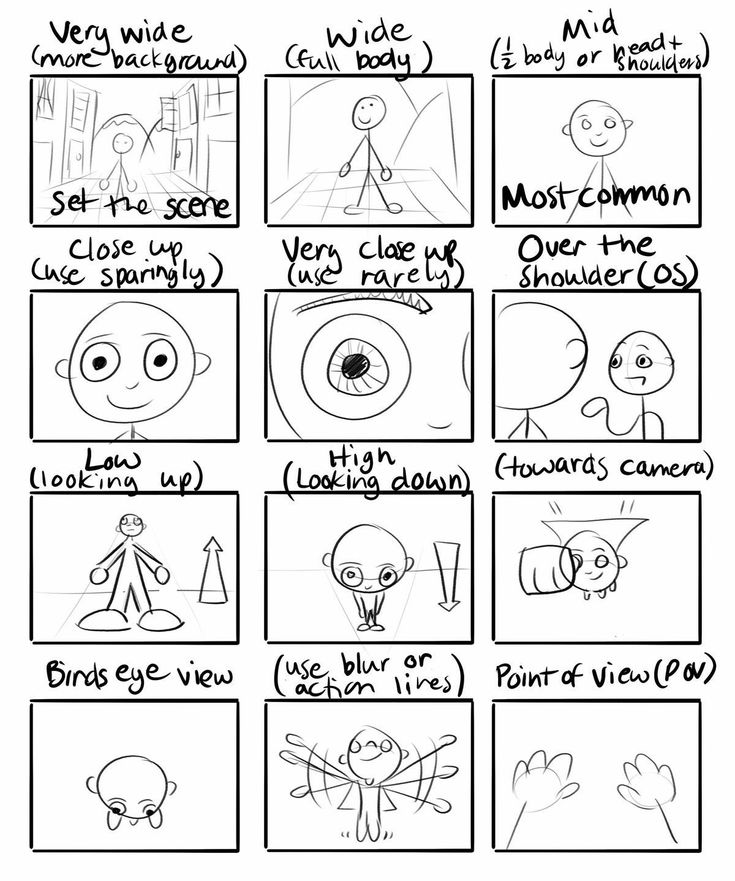 Very wide
(more background)
Wide
(full body)
Mid
(1/2 body or head+
shoulders)
Set the scene
Most common
Close up
(use sparingly)
Very close up
(use rarely)
Over the
shoulder (OS)
Low
(looking up)
High
(Looking down)
(towards camera)
Birds eye view
(use blur or
action lines)
Point of view (POV)